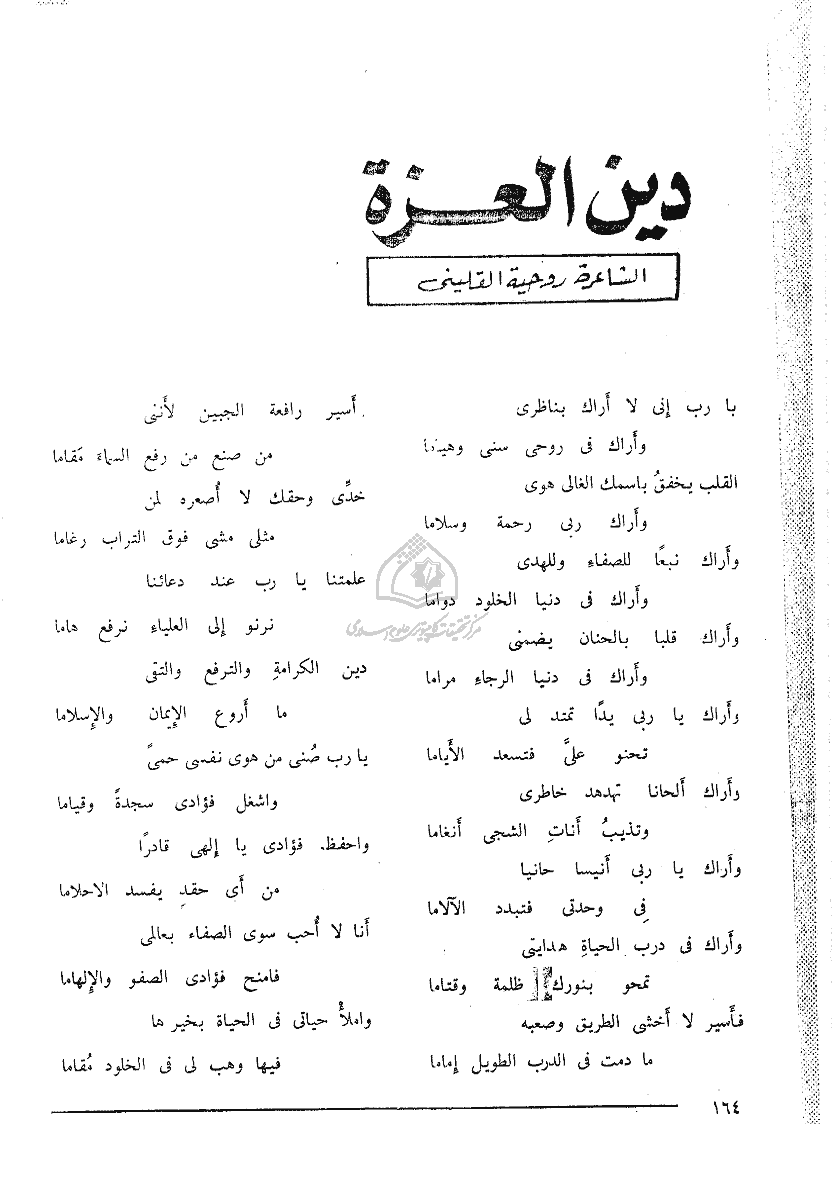 دين العزة
الشاعرة روحية القلينى
يا رب إنى لا أراك بناظرى
وأراك فى روحى سنى وهياما
القلب يخفقُ باسمك الغالى هوى
وأراك ربى رحمة وسلاما
وأراك نبعًا للصفاء وللهدى
وأراك فى دنيا الخلود دواما
وأراك قلبا بالحنان يضمنى
وأراك فى دنيا الرجاءِ مراما
وأراك يا ربى يدًا تمتد لى
تحنو علىَّ فتسعد الأياما
وأراك ألحانا تهدهد خاطرى
وتذيبُ أناتِ الشجى أنغاما
وأراك يا ربى أنيسا حانيا
فِى وحدتى فتبدد الآلاما
وأراك فى درب الحياةِ هدايتى
تمحو بنورك ظلمة وقتاما
فأسير لا أخشى الطريق وصعبه
ما دمت فى الدرب الطويل إماما
أسير رافعة الجبين لأننى
من صنع من رفع السماء مَقاما
خدِّى وحقك لا أُصعره لمن
مثلى مشى فوق التراب رغاما
علمتنا يا رب عند دعائنا
نرنو إلى العلياءِ نرفع هاما
دين الكرامةِ والترفع والتقى
ما أروع الإيمان والإسلاما
يا رب صُنى من هوى نفسى حمىً
واشغل فؤادى سجدةً وقياما
واحفظ فؤادى يا إلهى قادرًا
من أى حقدٍ يفسد الاحلاما
أنا لا أُحب سوى الصفاء بعالمى
فامنح فؤادى الصفو والإلهاما
واملأْ حياتى فى الحياة بخيرها
فيها وهب لى فى الخلود مُقاما
١٦٤